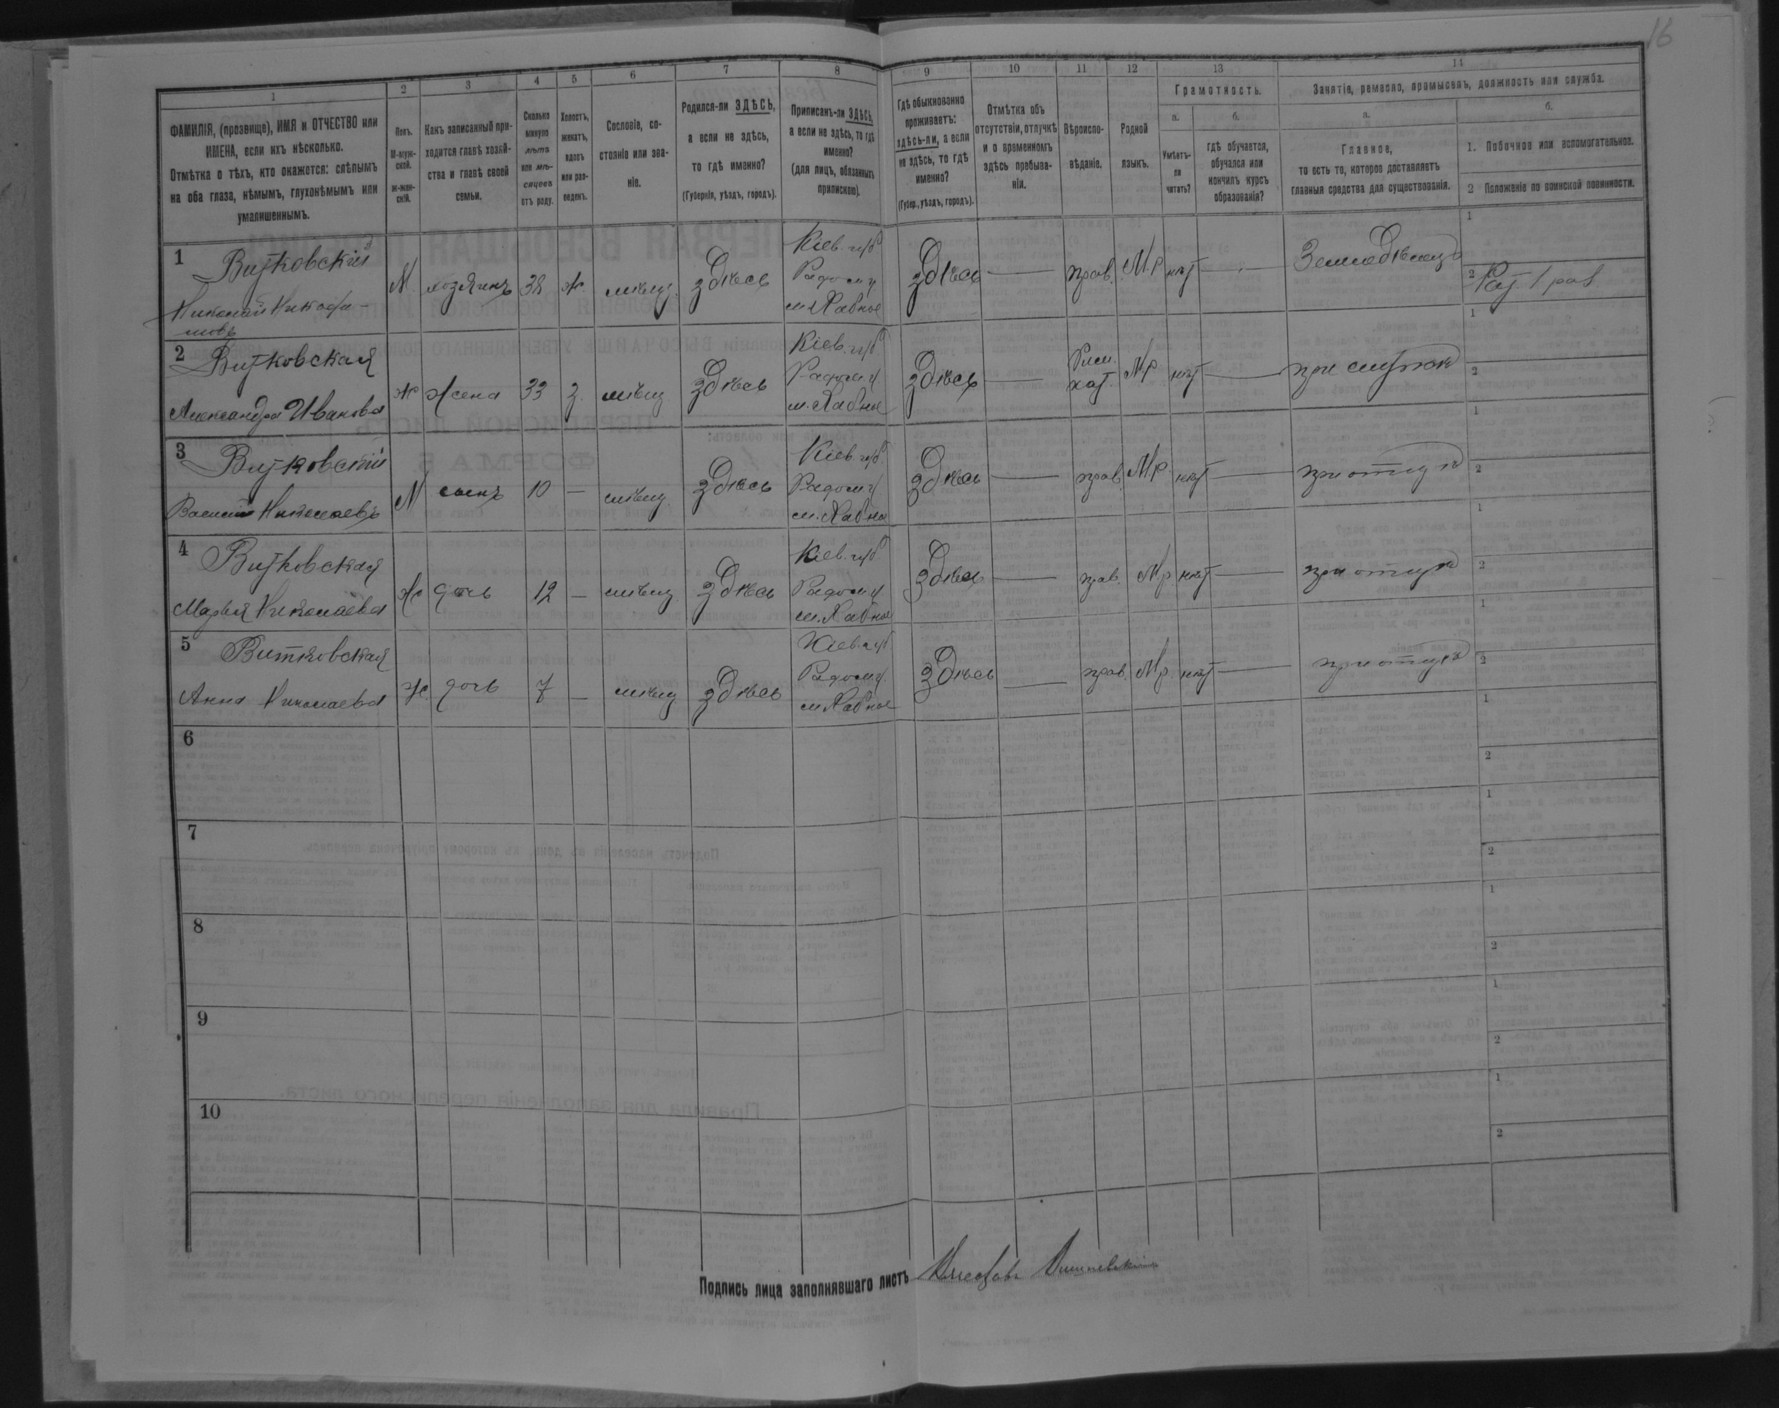 16
1 2 3 4 5 6 7 8 9 10 11 12 13 14
ФАМИЛІЯ, (прозвище), ИМЯ и ОТЧЕСТВО или
ИМЕНА, если ихъ нѣсколько.
Отмѣтка о тѣхъ, кто окажется: слѣпымъ
на оба глаза, нѣмымъ, глухонѣмымъ или
умалишеннымъ.
Полъ.
М-муж-
ской.
ж-жен-
скій.
Какъ записанный при-
ходится главѣ хозяй-
ства и главѣ своей
семьи.
Сколько
минуло
лѣтъ
или мѣ-
сяцевъ
отъ роду.
Холостъ,
женатъ,
вдовъ
или раз-
веденъ.
Сословіе, со-
стояніе или зва-
ніе.
Родился-ли ЗДѢСЬ,
а если не здѣсь,
то гдѣ именно?
(Губернія, уѣздъ, городъ).
Приписанъ-ли ЗДѢСЬ,
а если не здѣсь, то гдѣ
именно?
(для лицъ, обязанныхъ
припиской).
Гдѣ обыкновенно
проживаетъ:
здѣсь-ли, а если
не здѣсь, то гдѣ
именно?
(Губер., уѣздъ, городъ).
Отмѣтка объ
отсутствіи, отлучкѣ
и о временномъ
здѣсь пребыва-
ніи.
Вѣроиспо-
вѣданіе.
Родной
языкъ.
Грамотность.
а.
Умѣетъ-
ли
читать?
б.
гдѣ обучается,
обучался или
кончилъ курсъ
образованія?
Занятіе, ремесло, промыселъ, должность или служба.
а.
Главное,
то есть то, которое доставляетъ
главныя средства для существованія.
б.
1. Побочное или вспомогательное.
2 Положеніе по воинской повинности.
1 Витковскій
Николай Никифо-
ровъ
М хозяинъ 38 ж мѣщ. здѣсь
Кіев. губ
Радом у
м. Хабное
здѣсь — прав. М.р нѣт — Земледѣлецъ
1
2
2 Витковская
Александра Иванова
ж жена 33 з. мѣщ здѣсь
Кіев. губ
Радом у
м. Хабное
здѣсь — Рим.
кат. М.р нѣт — при мужѣ
1
2
3 Витковскій
Василій Николаевъ
М сынъ 10 — мѣщ здѣсь
Кіев. губ
Радом у
м. Хабное
здѣсь — прав. М.р нѣт — при отцѣ
1
2
4 Витковская
Марья Николаева
ж дочь 12 — мѣщ здѣсь
Кіев. губ
Радом у
м. Хабное
здѣсь — прав. М.р нѣт — при отцѣ
1
2
5 Витковская
Анна Николаева
ж. дочь 7 — мѣщ здѣсь
Кіев. губ
Радом у
м. Хабное
здѣсь — прав. М.р. нѣт — при отцѣ
1
2
6
1
2
7
1
2
8
1
2
9
1
2
10
1
2
Подпись лица заполнявшаго листъ